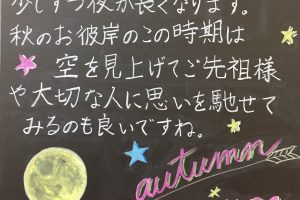 少しずつ夜が長くなります。
秋のお彼岸のこの時期は
空を見上げてご先祖様
や大切な人に思いを馳せて
みるのも良いですね。
autumn